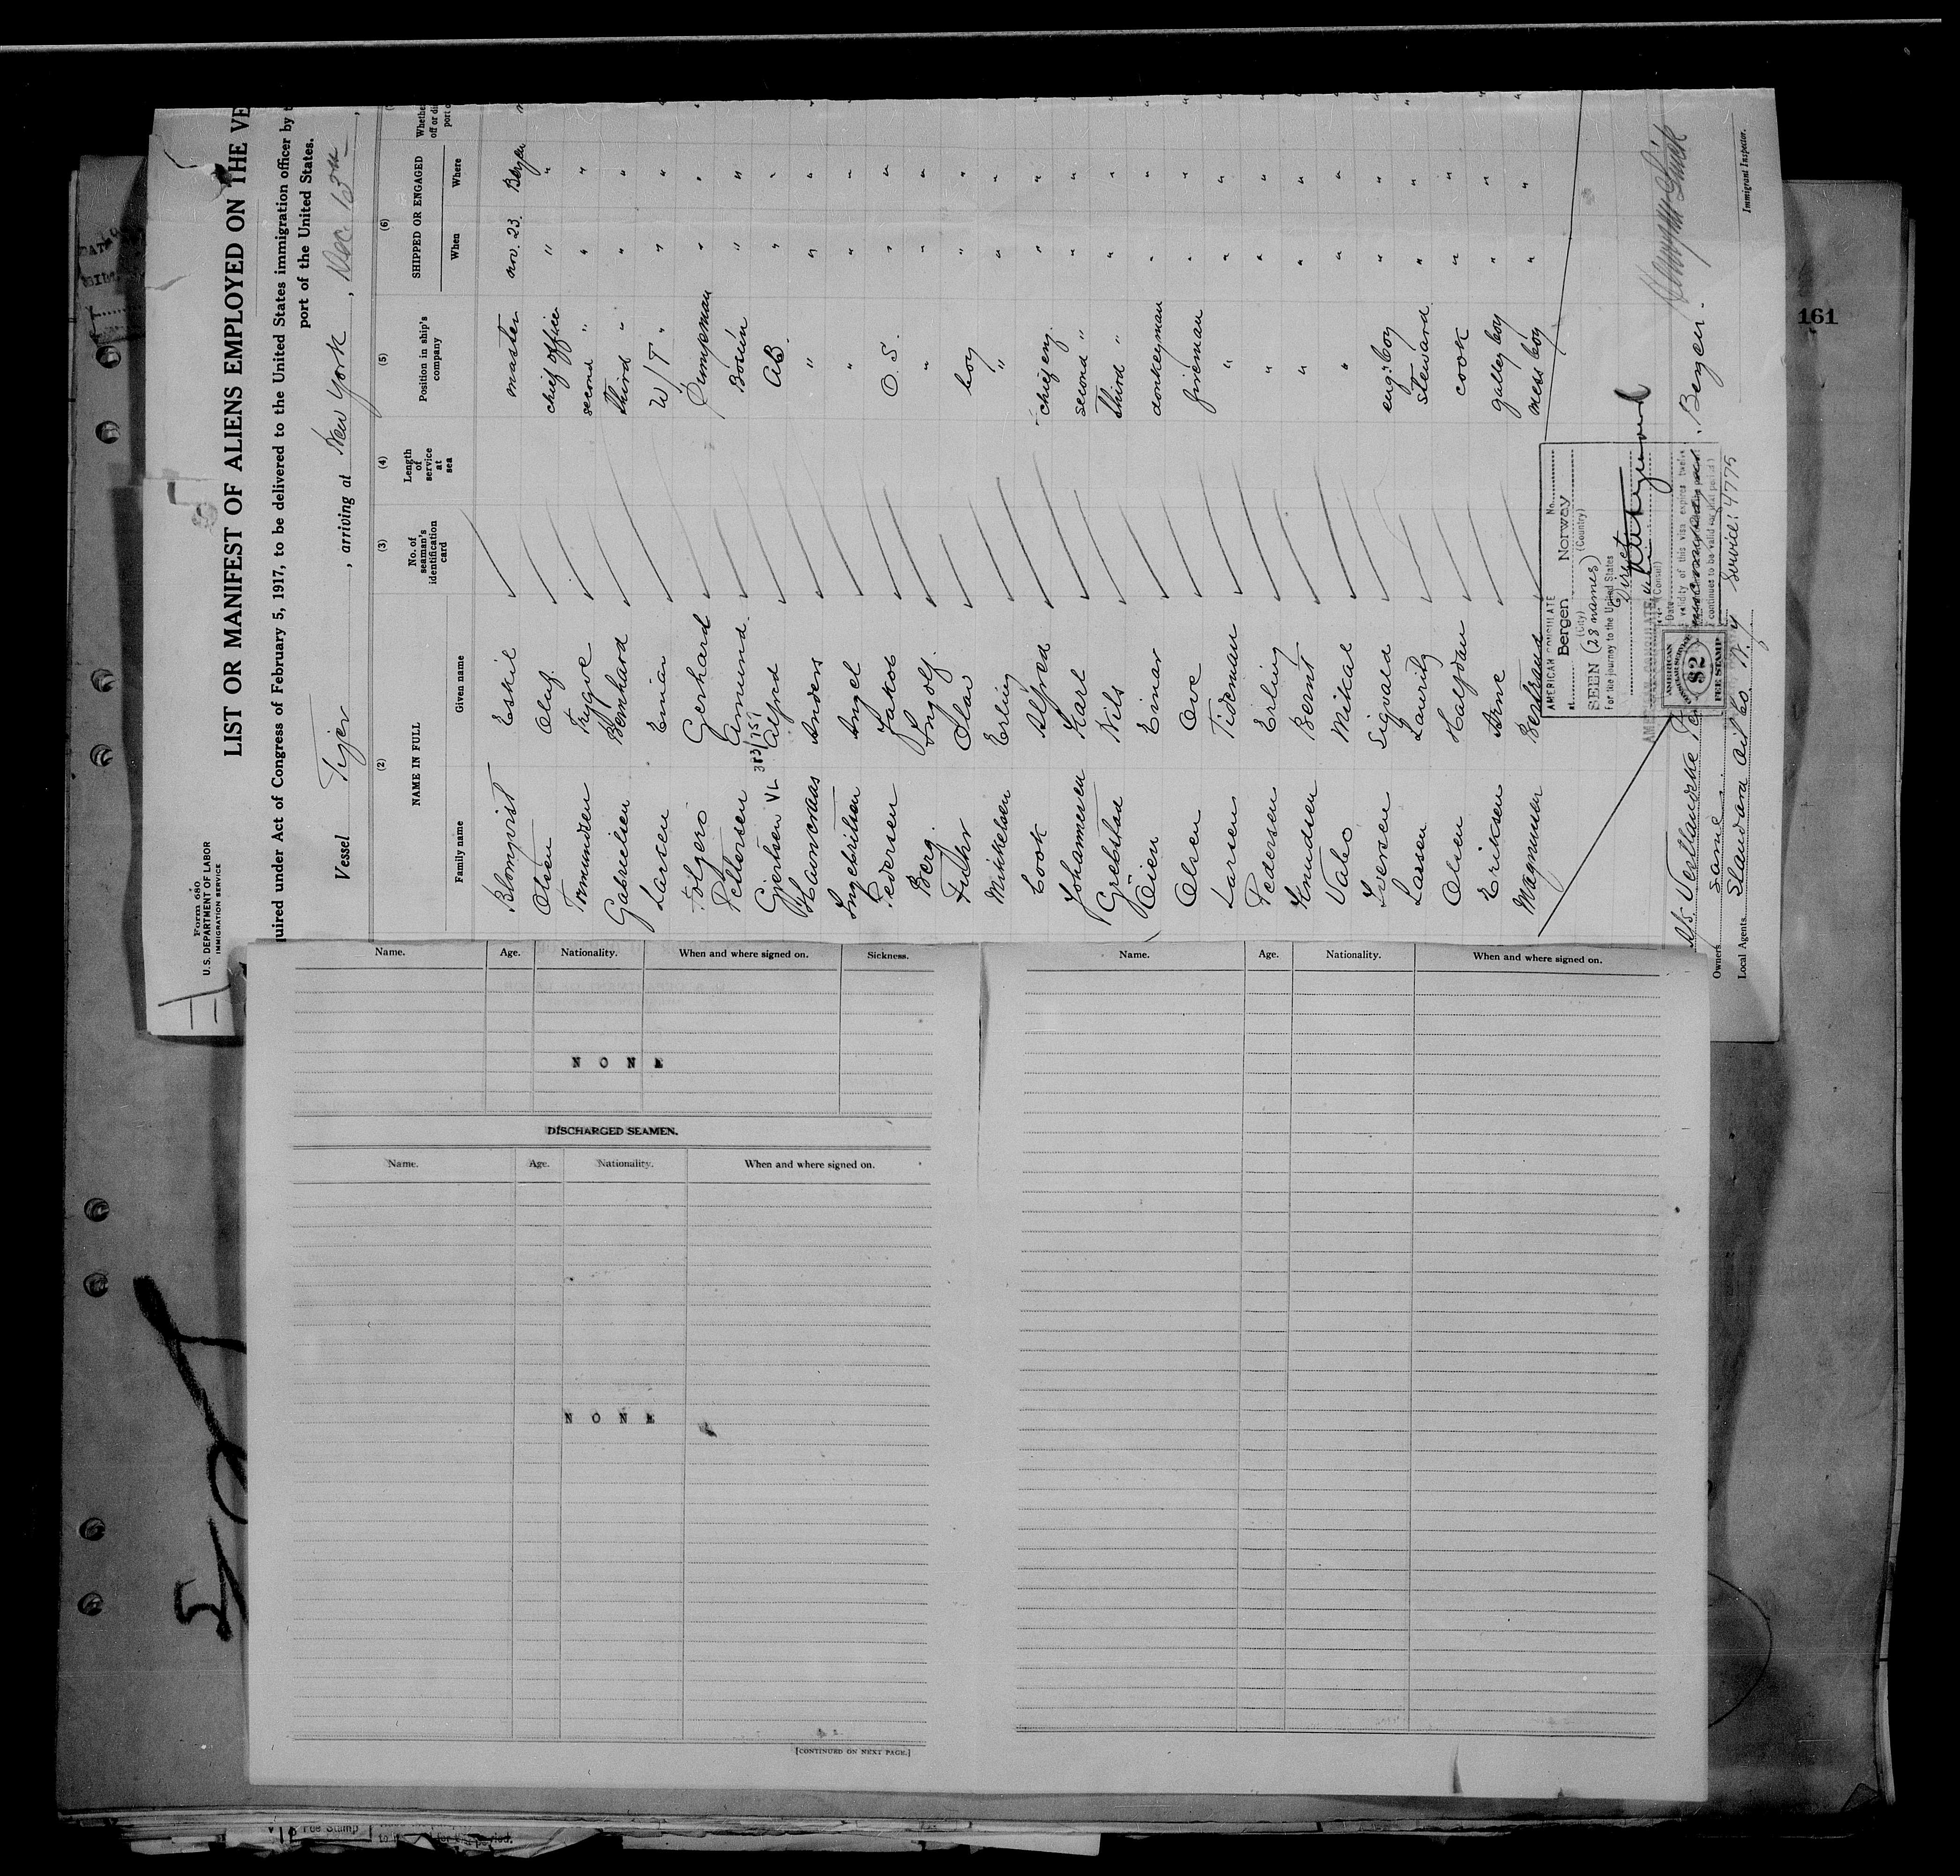 Form 680
U.S. DEPARTMENT OF LABOR
IMMIGRATION SERVICE
LIST OR MANIFEST OF ALIENS EMPLOYED ON THE VE
quired under Act of Congress of February 5, 1917, to be delivered to the United States immigration officer by t
port of the United States.
Vessel Tiger, arriving at New York, Dec. 13th
(2) (3) (4) (5) (6)
NAME IN FULL No. of seaman's identification card Length of service at sea Position in ship's company SHIPPED OR ENGAGED
Family name Given name When Where
Blomqvist Eskil master nov. 23. Bergen
Olsen Oluf chief officer " "
Tommundsen Trygve second " " "
Gabrielsen Bernhard Third " " "
Larsen Einar W/T " " "
Folgerø Gerhard Pumpman " "
Pettersen Amund Bosu'n " "
Gjertsen VL 383/751 Alfred AB. " "
Hancraas Anders " " "
Ingebritsen Angel " " "
Pedersen Jakob O. S. " "
Berg. Ingolf. " " "
Olav boy " "
Mikkelsen Erling " " "
Cook Alfred chief eng. " "
Johannesen Karl second " " "
Grebstad Nils Third " " "
Eien Einar donkeyman " "
Olsen Ove fireman " "
Larsen Tideman " " "
Pedersen Erling " " "
Knudsen Bernt " " "
Vabo Mikal " " "
Iversen Sigvald eng. boy " "
Larsen Lauritz Steward " "
Olsen Halfdan cook " "
Eriksen Arne galley boy " "
Magnussen Bertrand mess boy " "
AMERICAN CONSULATE No.
at Bergen Norway
(City) (Country)
SEEN (28 names)
For the journey to the United States
Direct
(Consul)
Date
validity of this visa expires twelve
AMERICAN
$2
FEE STAMP
Bergen.
Owners same
Local Agents Standard Oil Co. N.Y
Immigrant Inspector.
161
Name. Age. Nationality. When and where signed on. Sickness.
NONE
DISCHARGED SEAMEN.
Name. Age. Nationality. When and where signed on.
NONE
[CONTINUED ON NEXT PAGE.]
Name. Age. Nationality. When and where signed on.
Fee Stamp